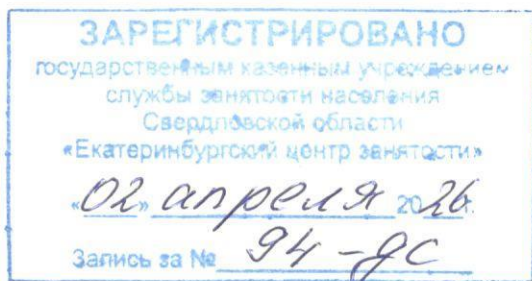 ЗАРЕГИСТРИРОВАНО
государственным казенным учреждением
службы занятости населения
Свердловской области
«Екатеринбургский центр занятости»
«02» апреля 2026г.
Запись за № 94-ДС